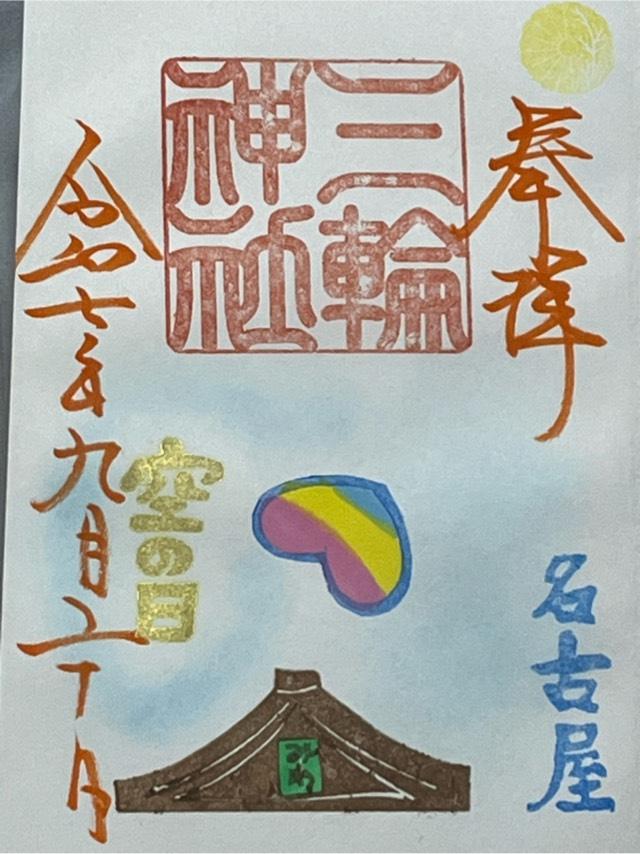 奉拝
三輪
神社
令和七年九月二十日
空の日
名古屋
みわ